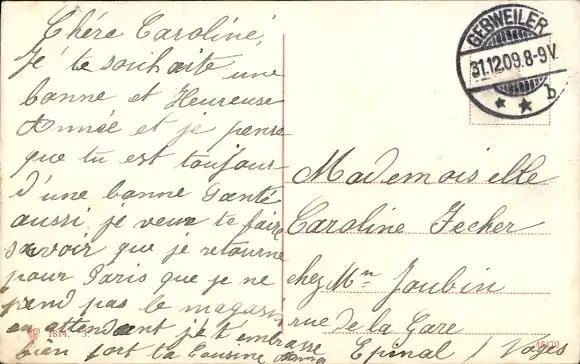 Chére Caroline,
Je te souhaite une
bonne et Heureuse
Année et je pense
que tu est toujour
d'une bonne Santé
aussi, je veux te faire
savoir que je retourne
pour Paris que je ne
pend pas le magasin
en attendent je t'embrasse
bien fort ta Cousine
GEBWEILER
31.12.09.8-9V.
b
Mademoiselle
Caroline Fecher
chez Mn Joubin
rue de la Gare
Epinal / Vosges